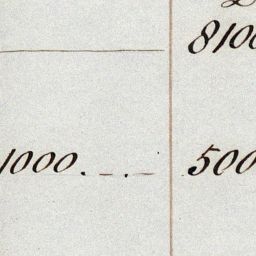 810
1000. _ . _ 500